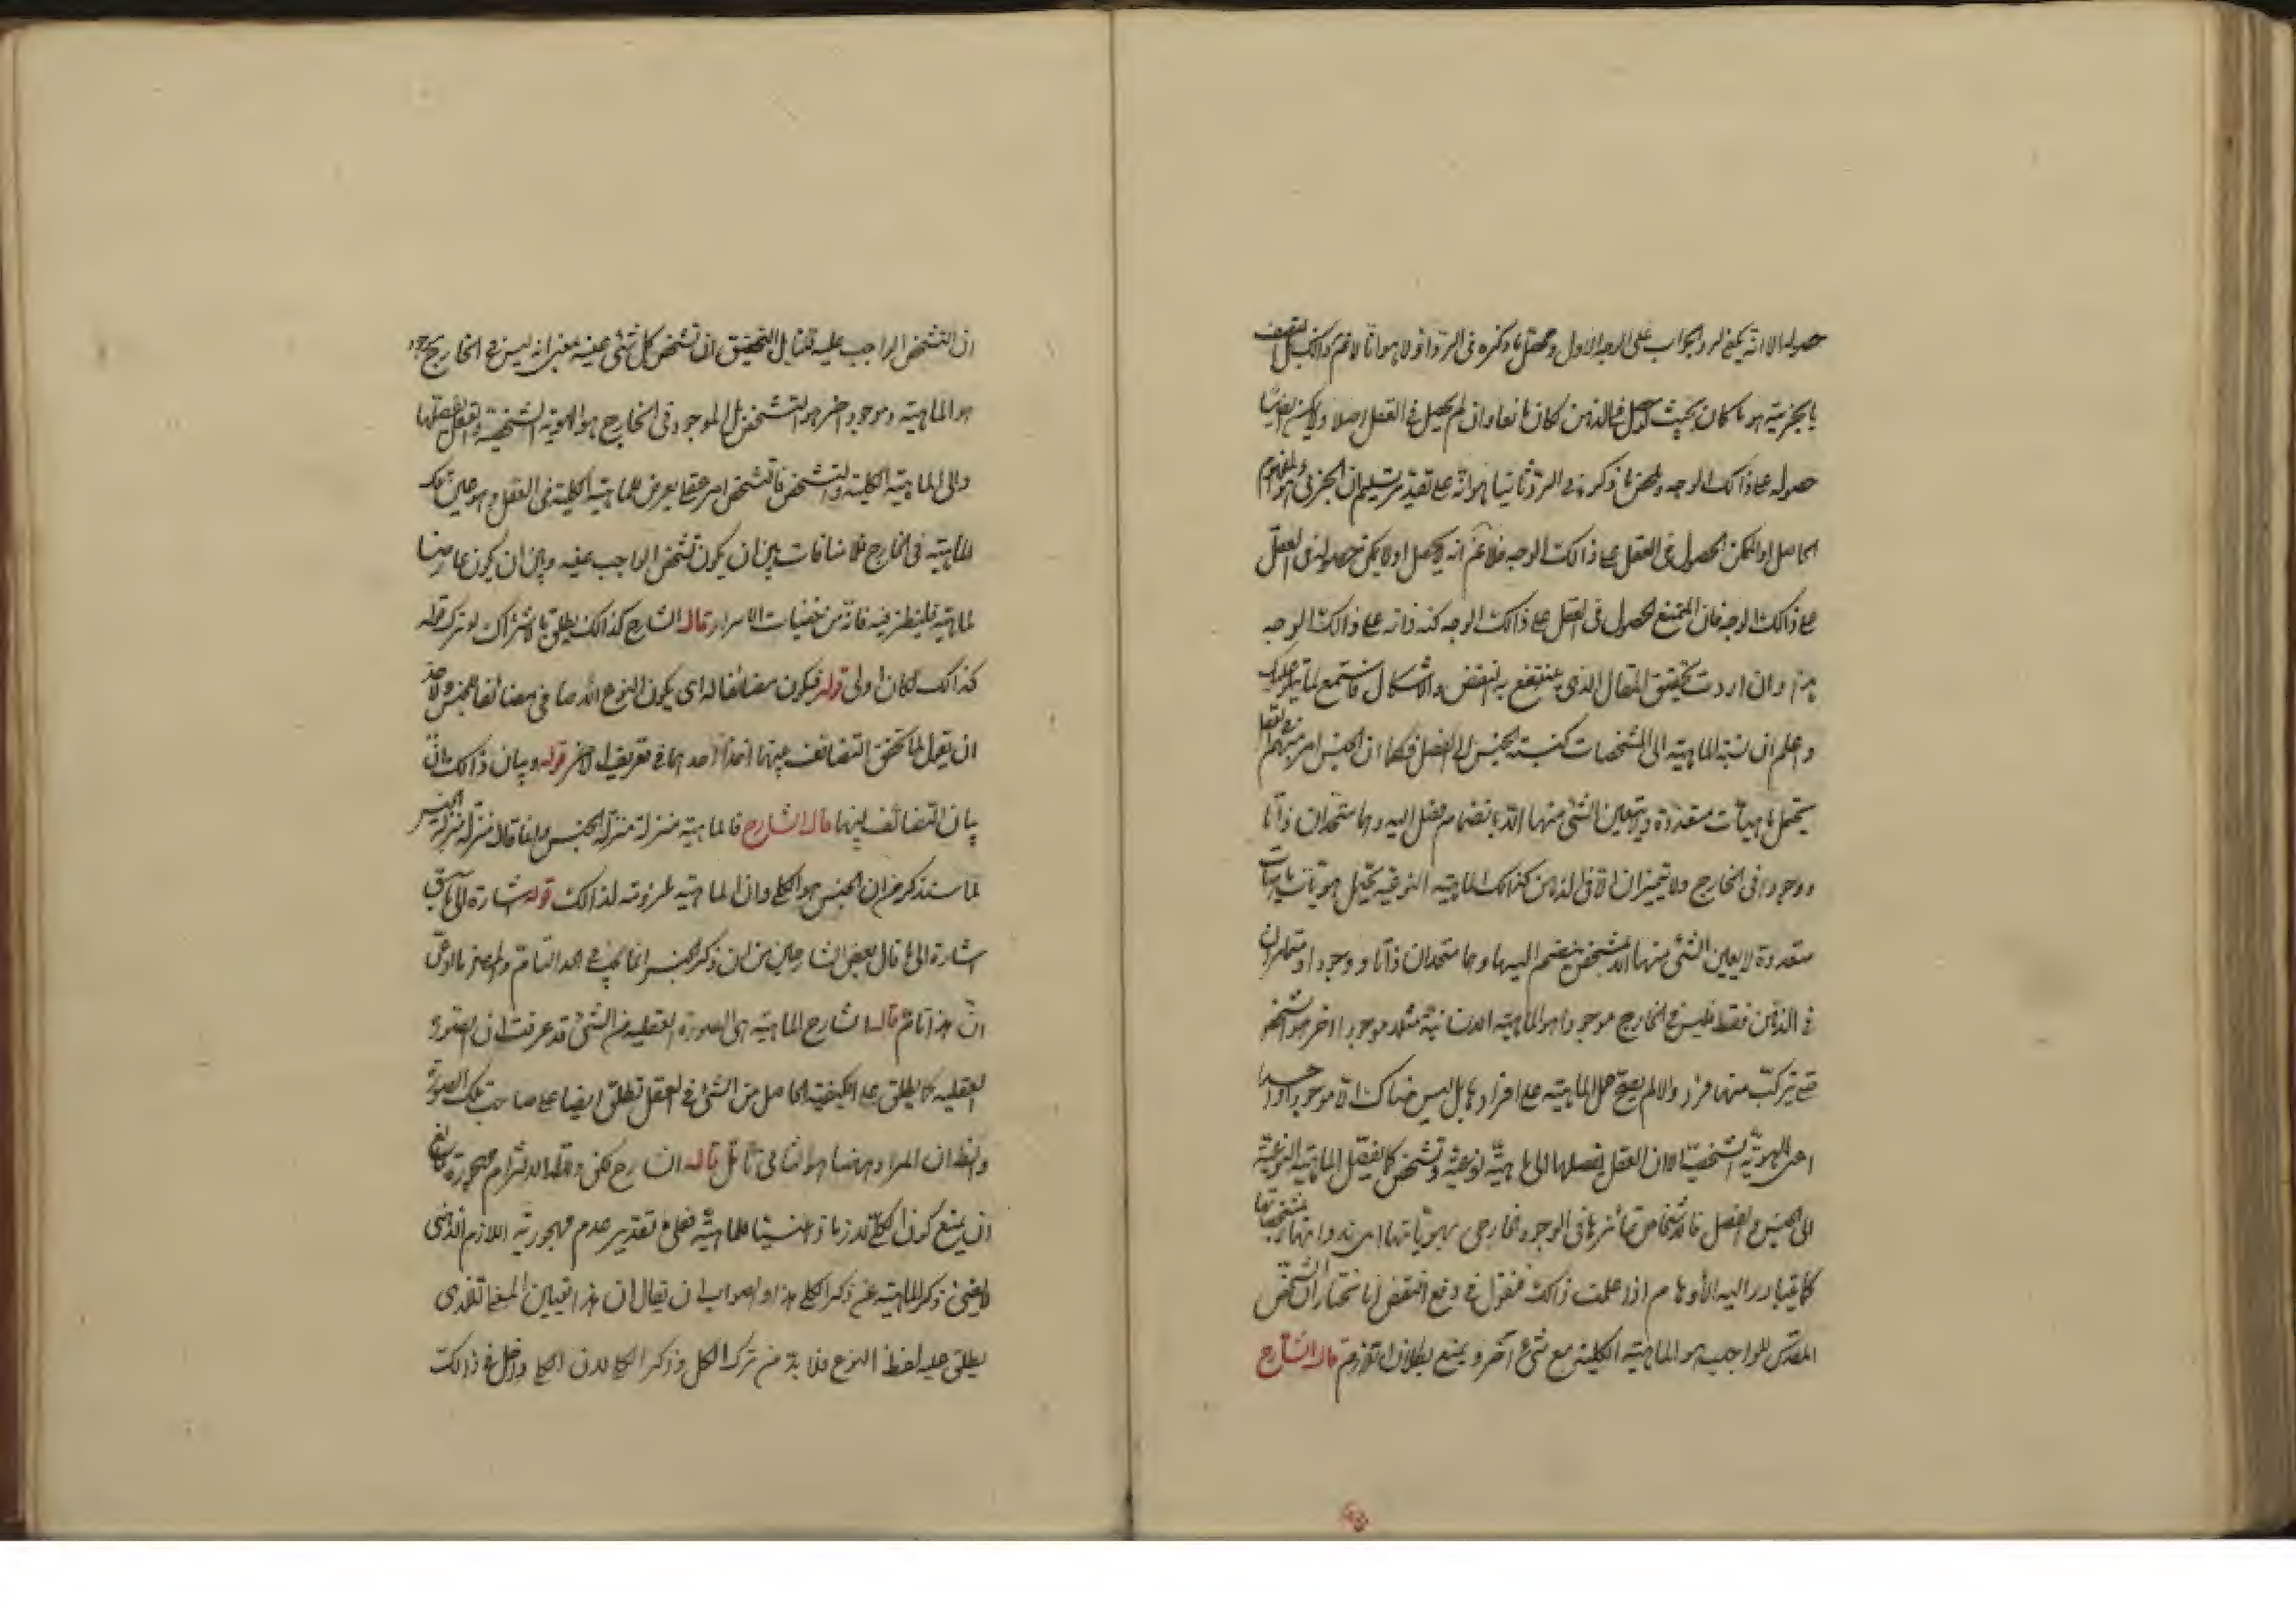 حصوله الا انه يمكن الرد والجواب على الوجه الاول ومحصل ما ذكره في الرد اولا هو انا لا نم ذالك بل المتصف
بالجزئية هو ما كان بحيث لو حصل في الذهن لكان مانعا وان لم يحصل في العقل اصلا ولا يمكن ايضا
حصوله على ذالك الوجه وملخص ما ذكره في الرد ثانيا هو انه على تقدير تسليم ان الجزئي هو المفهوم
الحاصل او الممكن الحصول في العقل على ذالك الوجه فلا نم انه لا يحصل او لا يمكن حصوله في العقل
على ذالك الوجه فان الممتنع الحصول في العقل على ذالك الوجه كنه ذاته على ذالك الوجه
هذا وان اردت تحقيق المقال الذي ينتفع به النقض والاشكال فاستمع لما يتلى عليك
واعلم ان نسبة الماهية الى المشخصات كنسبة الجنس الى الفصل فكما ان الجنس امر مبهم في العقل
يحتمل ماهيات متعددة ولا يتعين لشئ منها الا بانضمام فصل اليه وهما متحدان ذاتا
ووجودا في الخارج ولا يتميزان الا في الذهن كذالك الماهية النوعية يحتمل هويات
متعددة لا يتعين لشئ منها الا بتشخص ينضم اليها وهما متحدان ذاتا ووجودا ومتمايزان
في الذهن فقط فليس في الخارج موجود هو الماهية الانسانية مثلا وموجود اخر هو التشخص
حتى يتركب منهما فرد والا لم يصح حمل الماهية على افرادها بل ليس هناك الا موجود واحد
اعني الهوية الشخصية الا ان العقل يفصلها الى ماهية نوعية وتشخص كما يفصل الماهية النوعية
الى الجنس والفصل فالاشخاص تمايزها في الوجود الخارجي بهوياتها اي بذواتها لا بمشخصاتها
كما يتبادر اليه الأوهام اذا علمت ذالك فنقول في دفع النقض انا نختار ان التشخص
المقدس للواجب هو الماهية الكلية مع شئ آخر ويمنع بطلان اللازم قال الشارح
ان التشخص الواجب عليه قلنا بل التحقيق ان تشخص كل شئ عينه بمعنى انه ليس في الخارج موجود
هو الماهية وموجود اخر هو التشخص بل الموجود في الخارج هو الهوية الشخصية والعقل يفصلها
الى الماهية الكلية والتشخص فالتشخص امر عقلي يعرض للماهية الكلية في العقل وهو عين تلك
الماهية في الخارج فلا منافات بين ان يكون تشخص الواجب عينه وبين ان يكون عارضا
لماهية فلينظر فيه فانه من خفيات الاسرار قال الشارح كذالك يطلق بالاشتراك لو ترك قوله
كذالك لكان اولى قوله فيكون مضائفا له اي يكون النوع الاضافي مضائفا للجنس ولا حد
ان يقول لما تحقق التضائف بينهما اخذ احدهما في تعريف الاخر قوله وبيان ذالك ان
بيان التضائف بينهما قال الشارح فالماهية منزلة منزلة الجنس وانما قال منزلة منزلة الجنس
لما ستذكر من ان الجنس هو الكلي وان الماهية ملزومة لذالك قوله اشارة الى ما سبق
اشارة الى ما قال بعض الشارحين من ان ذكر الجنس انما يجب في الحد التام
ان هذا تام قال الشارح الماهية هي الصورة العقلية من الشئ قد عرفت ان الصورة
العقلية كما يطلق على الكيفية الحاصل من الشئ في العقل تطلق ايضا على صاحب تلك الصورة
والظ ان المراد ههنا هو الثاني تأمل قال الشارح لكن دلالة الالتزام مهجورة
ان يمنع كون الكلي لازما ذهنيا للماهية فعلى تقدير عدم مهجورية اللازم الذهني
لا يغني ذكر الماهية عن ذكر الكلي هذا والصواب ان يقال ان هذا تعيين المعنى الذي
يطلق عليه لفظ النوع فلا بد من ترك الكل وذكر الكلي لان الكلي داخل في ذالك